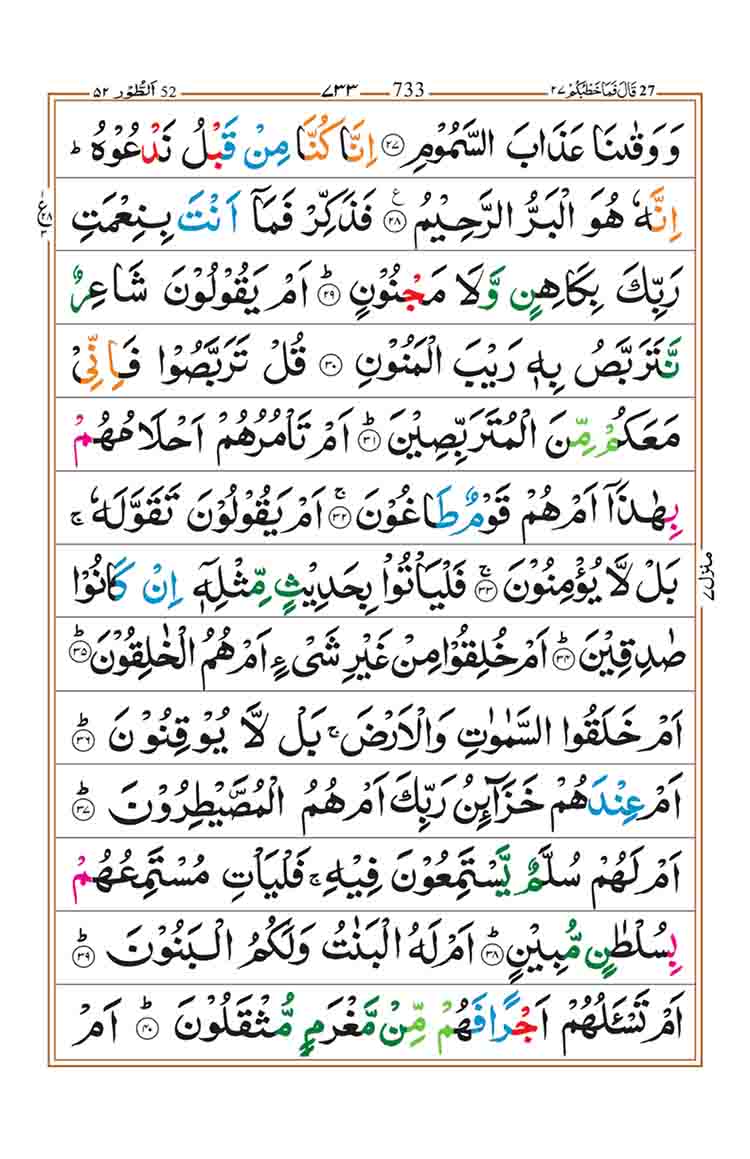 27 قَالَ فَمَا خَطْبُكُمْ ۲۷
733 ۷۳۳
52 اَلطُّوْر ۵۲
وَ وَقٰىنَا عَذَابَ السَّمُوْمِ ﴿۲۷﴾ اِنَّا كُنَّا مِنْ قَبْلُ نَدْعُوْهُ ؕ
اِنَّهٗ هُوَ الْبَرُّ الرَّحِيْمُ ﴿۲۸﴾ ع فَذَكِّرْ فَمَاۤ اَنْتَ بِنِعْمَتِ
رَبِّكَ بِكَاهِنٍ وَّلَا مَجْنُوْنٍ ؕ﴿۲۹﴾ اَمْ يَقُوْلُوْنَ شَاعِرٌ
نَّتَرَبَّصُ بِهٖ رَيْبَ الْمَنُوْنِ ﴿۳۰﴾ قُلْ تَرَبَّصُوْا فَاِنِّىْ
مَعَكُمْ مِّنَ الْمُتَرَبِّصِيْنَ ؕ﴿۳۱﴾ اَمْ تَاْمُرُهُمْ اَحْلَامُهُمْ
بِهٰذَاۤ اَمْ هُمْ قَوْمٌ طَاغُوْنَ ۚ﴿۳۲﴾ اَمْ يَقُوْلُوْنَ تَقَوَّلَهٗ ۚ
بَلْ لَّا يُؤْمِنُوْنَ ۚ﴿۳۳﴾ فَلْيَاْتُوْا بِحَدِيْثٍ مِّثْلِهٖۤ اِنْ كَانُوْا
صٰدِقِيْنَ ؕ﴿۳۴﴾ اَمْ خُلِقُوْا مِنْ غَيْرِ شَىْءٍ اَمْ هُمُ الْخٰلِقُوْنَ ؕ﴿۳۵﴾
اَمْ خَلَقُوا السَّمٰوٰتِ وَالْاَرْضَ ۚ بَلْ لَّا يُوْقِنُوْنَ ؕ﴿۳۶﴾
اَمْ عِنْدَهُمْ خَزَآئِنُ رَبِّكَ اَمْ هُمُ الْمُصَۜيْطِرُوْنَ ؕ﴿۳۷﴾
اَمْ لَهُمْ سُلَّمٌ يَّسْتَمِعُوْنَ فِيْهِ ۚ فَلْيَاْتِ مُسْتَمِعُهُمْ
بِسُلْطٰنٍ مُّبِيْنٍ ؕ﴿۳۸﴾ اَمْ لَهُ الْبَنٰتُ وَلَكُمُ الْبَنُوْنَ ؕ﴿۳۹﴾
اَمْ تَسْـَٔلُهُمْ اَجْرًا فَهُمْ مِّنْ مَّغْرَمٍ مُّثْقَلُوْنَ ؕ﴿۴۰﴾ اَمْ
ع ۲۸
منزل ۷